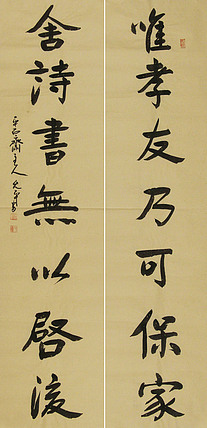 唯孝友乃可保家
舍詩書無以啓後